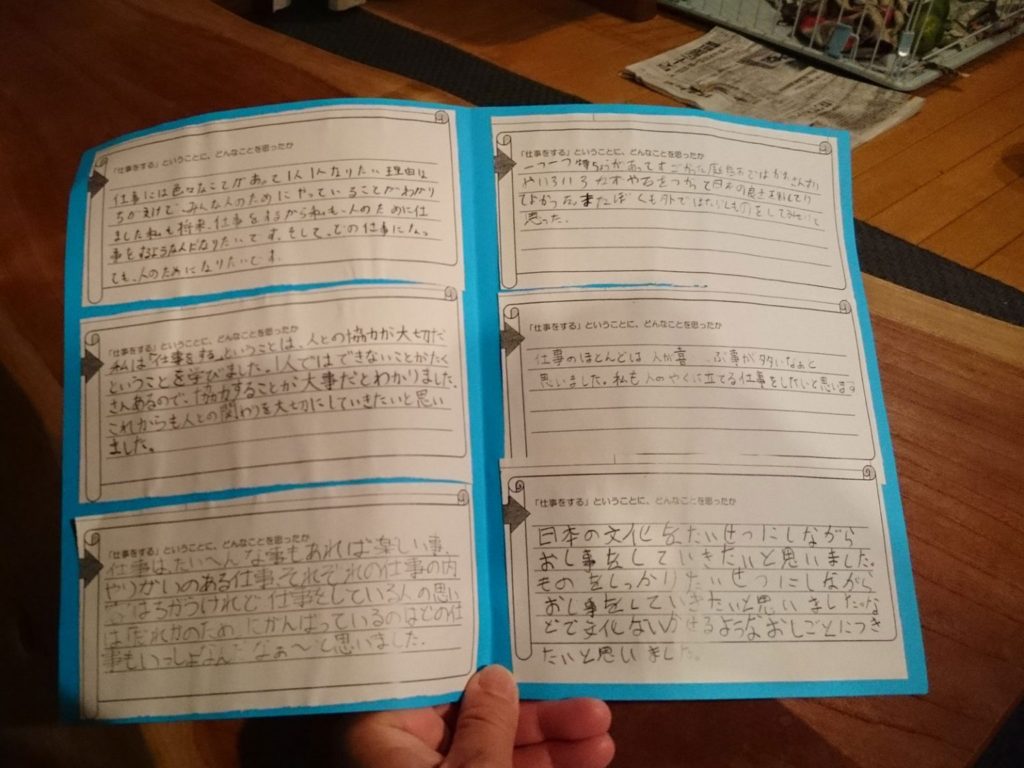 「仕事をする」ということに、どんなことを思ったか
仕事には色々なことがあって1人1人なりたい理由は
ちがえけど、みんな人のためにやっていることがわかり
ました私も将来、仕事をするから私も、人のために仕
事をするような人になりたいです。そして、どの仕事になっ
ても、人のためになりたいです。
「仕事をする」ということに、どんなことを思ったか
私は「仕事をする」ということは、人との協力が大切だ
ということを学びました。1人ではできないことがたく
さんあるので、「協力することが大事だとわかりました。
これからも人との関わりを大切にしていきたいと思い
ました。
「仕事をする」ということに、どんなことを思ったか
仕事は、たいへんな事もあれば楽しい事、
やりがいのある仕事、それぞれの仕事の内
はちがうけれど仕事をしている人の思い
は誰かのためにがんばっているのはどの仕
事もいっしょなんだなぁ〜と思いました。
「仕事をする」ということに、どんなことを思ったか
一つ一つ特ちょうがあってすごかった庭
やいろいろ 石をつかって日本の良さを
てよかった。またぼくも外ではたらくものをしてみたいと
思った。
「仕事をする」ということに、どんなことを思ったか
仕事のほとんどは 人が喜 ぶ事が多いなぁと
思いました。私も人のやくに立てる仕事をしたいと思います
「仕事をする」ということに、どんなことを思ったか
日本の文化をたいせつにしながら
おし事をしていきたいと思いました。
ものをしっかりたいせつにしながら
おし事をしていきたいと思いました。な
どで文化ないかせるようなおしごとにつき
たいと思いました。